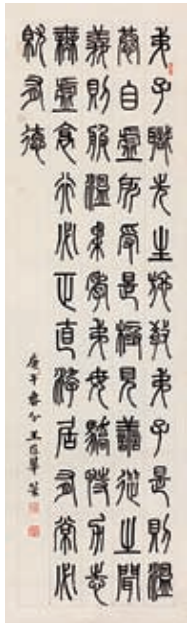 弟子職先生施教弟子是則溫
恭自虛所受是極見善從之聞
義則服溫柔孝弟毋驕恃力志
無虛衺行必正直游居有常必
就有德
庚午